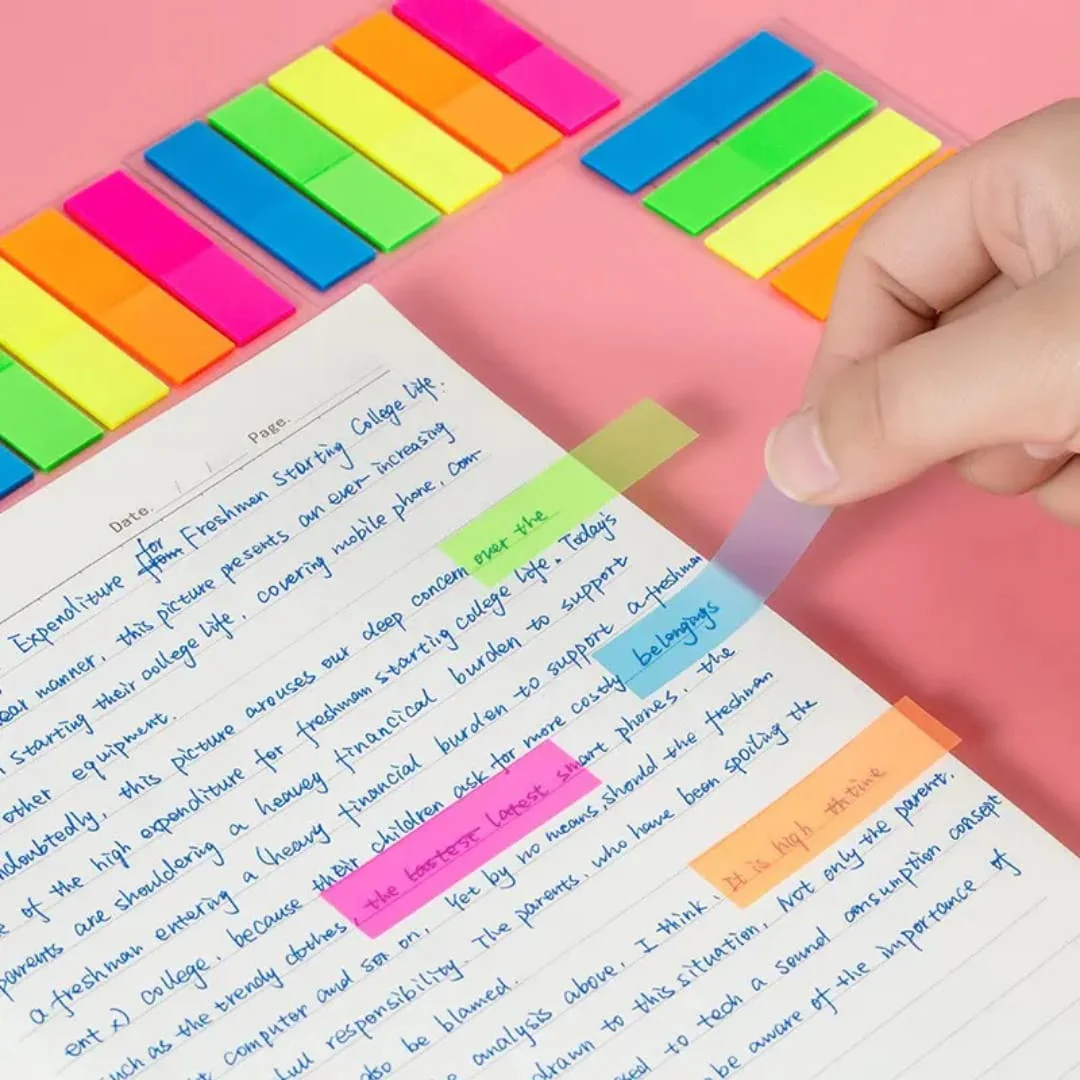 Date. Page.
Expenditure for from Freshmen Starting College life.
ear manner, this picture presents an ever-increasing
Starting their college life, covering mobile phone, com-
other equipment.
ndoubtedly, this picture arouses our deep concern over the
e of the high expenditure for freshman starting college life. Todays
parents are shouldering a heavey financical burden to support
a freshman entering a (heavy financial burden to support a freshman
ent x) college, because their children ask for more costly belongings
such as the trendy clothes, the lastest latest smart phones, the
computer and so on. Yet by no means should the freshman
full responsibility. The parents, who have been spoiling the
also be blamed.
analysis above, I think, It is high thtime
drawn to this situation, Not only the parent.
sed to tech a sound consumption consept
be aware of the importance of